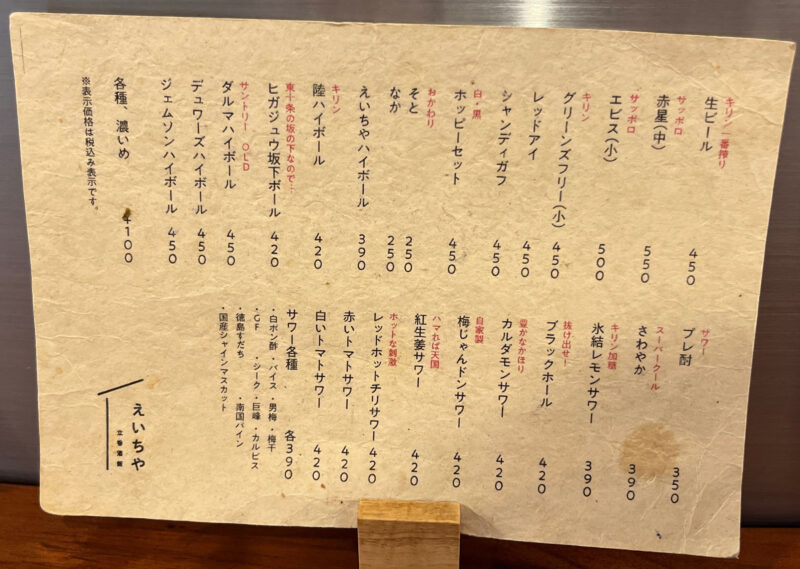 キリン 一番搾り
生ビール 450
サッポロ
赤星(中) 550
サッポロ
エビス(小) 500
キリン
グリーンズフリー(小) 450
レッドアイ 450
シャンディガフ 450
白・黒
ホッピーセット 450
おかわり
そと 250
なか 250
えいちやハイボール 390
キリン
陸ハイボール 420
東十条の坂の下なので…
ヒガジュウ坂下ボール 420
サントリー OLD
ダルマハイボール 450
デュワーズハイボール 450
ジェムソンハイボール 450
各種、濃いめ +100
※表示価格は税込み表示です。
サワー
プレ酎 350
スーパークール
さわやか 390
キリン加糖
氷結レモンサワー 390
抜け出せ!
ブラックホール 420
豊かなかほり
カルダモンサワー 420
自家製
梅じゃんドンサワー 420
ハマれば天国
紅生姜サワー 420
ホットな刺激
レッドホットチリサワー 420
赤いトマトサワー 420
白いトマトサワー 420
サワー各種 各390
・白ポン酢 ・バイス ・男梅 ・梅干
・GF ・シーク ・巨峰 ・カルピス
・徳島すだち ・南国パイン
・国産シャインマスカット
えいちや